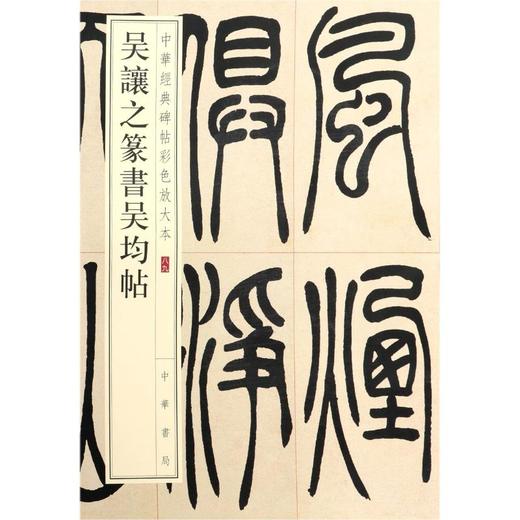 中華經典碑帖彩色放大本
八九
吴讓之篆書吴均帖
中華書局
風煙
俱淨